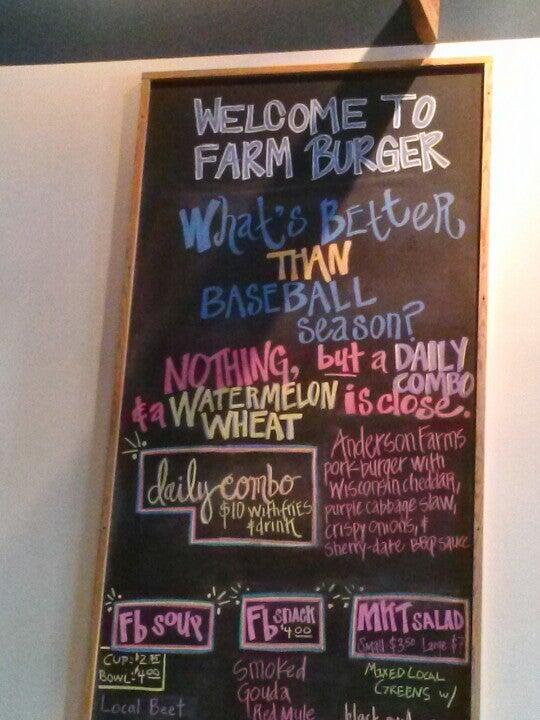 WELCOME TO
FARM BURGER
What's BEtteR
THAN
BASEBALL
season?
NOTHING, but a DAILY
COMBO
& a WATERMELON is close.
WHEAT
daily combo
$10 with fries
& drink
Anderson Farms
pork burger with
Wisconsin cheddar,
purple cabbage slaw,
crispy onions, &
sherry-date BBQ sauce
Fb SOUP
CUP:
BOWL: $4.00
Local Beet
Fb SNACK
$4.00
Smoked
Gouda
Red Mule
MKT SALAD
Small $3.50 Large $7
MIXED LOCAL
GREENS w/